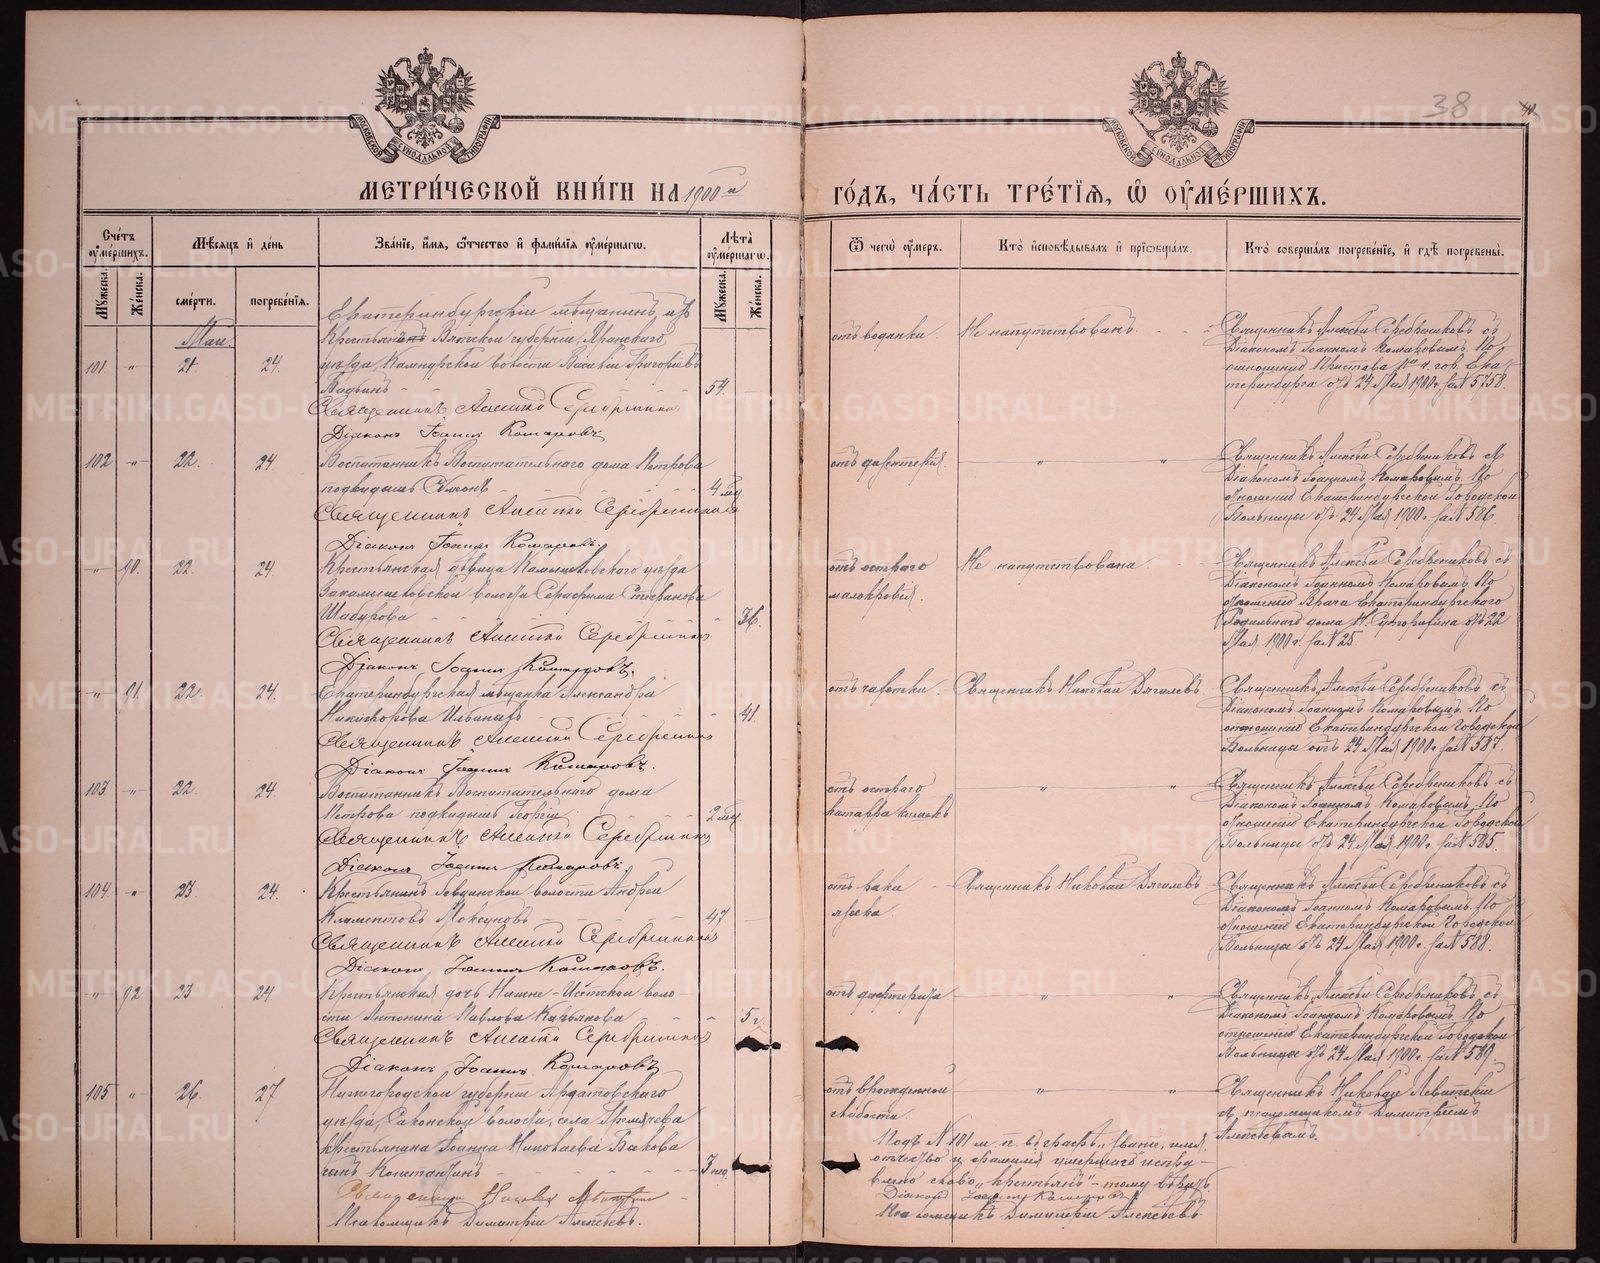 38
МОСКОВСКОЙ СѴНОДАЛЬНОЙ ТИПОГРАФІИ
МОСКОВСКОЙ СѴНОДАЛЬНОЙ ТИПОГРАФІИ
МЕТРИ́ЧЕСКОЙ КНИ́ГИ НА 1900 й
ГО́ДЪ, ЧА́СТЬ ТРЕ́ТІѦ, Ѽ ОУ҆МЕ́РШИХЪ.
Сче́тъ оу҆ме́ршихъ.
Мꙋжеска.
Же́нска.
Мѣ́сѧцъ и҆ де́нь
сме́рти.
погребе́нїѧ.
Зва́нїе, и҆́мѧ, ѻ҆́тчество и҆ фами́лїѧ оу҆ме́ршагѡ.
Лѣ́та оу҆ме́ршагѡ.
Мꙋжеска.
Же́нска.
Ѿ чегѡ̀ оу҆́меръ.
Кто̀ и҆сповѣ́дывалъ и҆ прїѡбща́лъ.
Кто̀ соверша́лъ погребе́нїе, и҆ гдѣ̀ погребены̀.
Май.
101 " 21 24.
Екатеринбургскій мѣщанинъ, изъ
крестьянъ Вятской губерніи, Яранскаго
уѣзда, волости Василій Григорьевъ
54
Священникъ Алексѣй Серебренниковъ
Діаконъ Іоаннъ Комаровъ
отъ водянки.
Не напутствованъ.
Священникъ Алексѣй Серебрениковъ съ
Діакономъ Іоанномъ Комаровымъ. По
отношенію Пристава 1й ч. гор. Ека-
теринбурга отъ 24 Мая 1900 г. за № 5758.
102 " 22. 24
Воспитанникъ Воспитательнаго дома Петрова
подкидышъ Симонъ
4 мц.
Священникъ Алексѣй Серебренниковъ
Діаконъ Іоаннъ Комаровъ.
отъ дифтерія.
" "
Священникъ Алексѣй Серебрениковъ съ
Діакономъ Іоанномъ Комаровымъ. По
отношенію Екатеринбургской Городской
Больницы отъ 24 Мая 1900 г. за № 586.
" 90. 22. 24.
Крестьянская дѣвица Камышловскаго уѣзда
Закамышловской волости Серафима Стефанова
Шабурова
36.
Священникъ Алексѣй Серебренниковъ
Діаконъ Іоаннъ Комаровъ.
отъ остраго
малокровія.
Не напутствована.
Священникъ Алексѣй Серебрениковъ съ
Діакономъ Іоанномъ Комаровымъ. По
отношенію Врача Екатеринбургскаго
Родильнаго дома отъ 22
Мая 1900 г. за № 25.
" 91. 22. 24.
Екатеринбургская мѣщанка Александра
Никифорова
41
Священникъ Алексѣй Серебренниковъ
Діаконъ Іоаннъ Комаровъ.
отъ чахотки.
Священникъ Николай Дягилевъ
Священникъ Алексѣй Серебрениковъ съ
Діакономъ Іоанномъ Комаровымъ. По
отношенію Екатеринбургской Городской
Больницы отъ 24 Мая 1900 г. за № 587.
103 " 22. 24.
Воспитанникъ Воспитательнаго дома
Петрова подкидышъ Георгій
2 мц.
Священникъ Алексѣй Серебренниковъ
Діаконъ Іоаннъ Комаровъ.
отъ остраго
катарра кишекъ
" "
Священникъ Алексѣй Серебрениковъ съ
Діакономъ Іоанномъ Комаровымъ. По
отношенію Екатеринбургской Городской
Больницы отъ 24 Мая 1900 г. за № 585.
104. " 23. 24.
Крестьянинъ волости Андрей
Климентовъ
47
Священникъ Алексѣй Серебренниковъ
Діаконъ Іоаннъ Комаровъ.
отъ рака
Священникъ Николай Дягилевъ
Священникъ Алексѣй Серебрениковъ съ
Діакономъ Іоанномъ Комаровымъ. По
отношенію Екатеринбургской Городской
Больницы отъ 24 Мая 1900 г. за № 588.
" 92 23 24
Крестьянская дочь Нижне-Исетской воло-
сти Антонина Павлова
5 г.
Священникъ Алексѣй Серебренниковъ
Діаконъ Іоаннъ Комаровъ
отъ дифтерита
" "
Священникъ Алексѣй Серебрениковъ съ
Діакономъ Іоанномъ Комаровымъ. По
отношенію Екатеринбургской Городской
Больницы отъ 24 Мая 1900 г. за № 589.
105 " 26. 27
Нижегородской губерніи Ардатовскаго
уѣзда, Саконской волости, села Гремячева
крестьянина Іоанна Николаева
сынъ Константинъ
3 нед.
Священникъ Николай Левитскій
Псаломщикъ Димитрій Алексѣевъ.
отъ врожденной
слабости.
" "
Священникъ Николай Левитскій
съ псаломщикомъ Димитріемъ
Алексѣевымъ.
Подъ № 101 м. п. въ графѣ „званіе, имя,
отчество и фамилія умершаго" испра-
влено слово „крестьянъ" - тому вѣрить.
Діаконъ Іоаннъ Комаровъ
Псаломщикъ Димитрій Алексѣевъ
METRIKI.GASO-URAL.RU